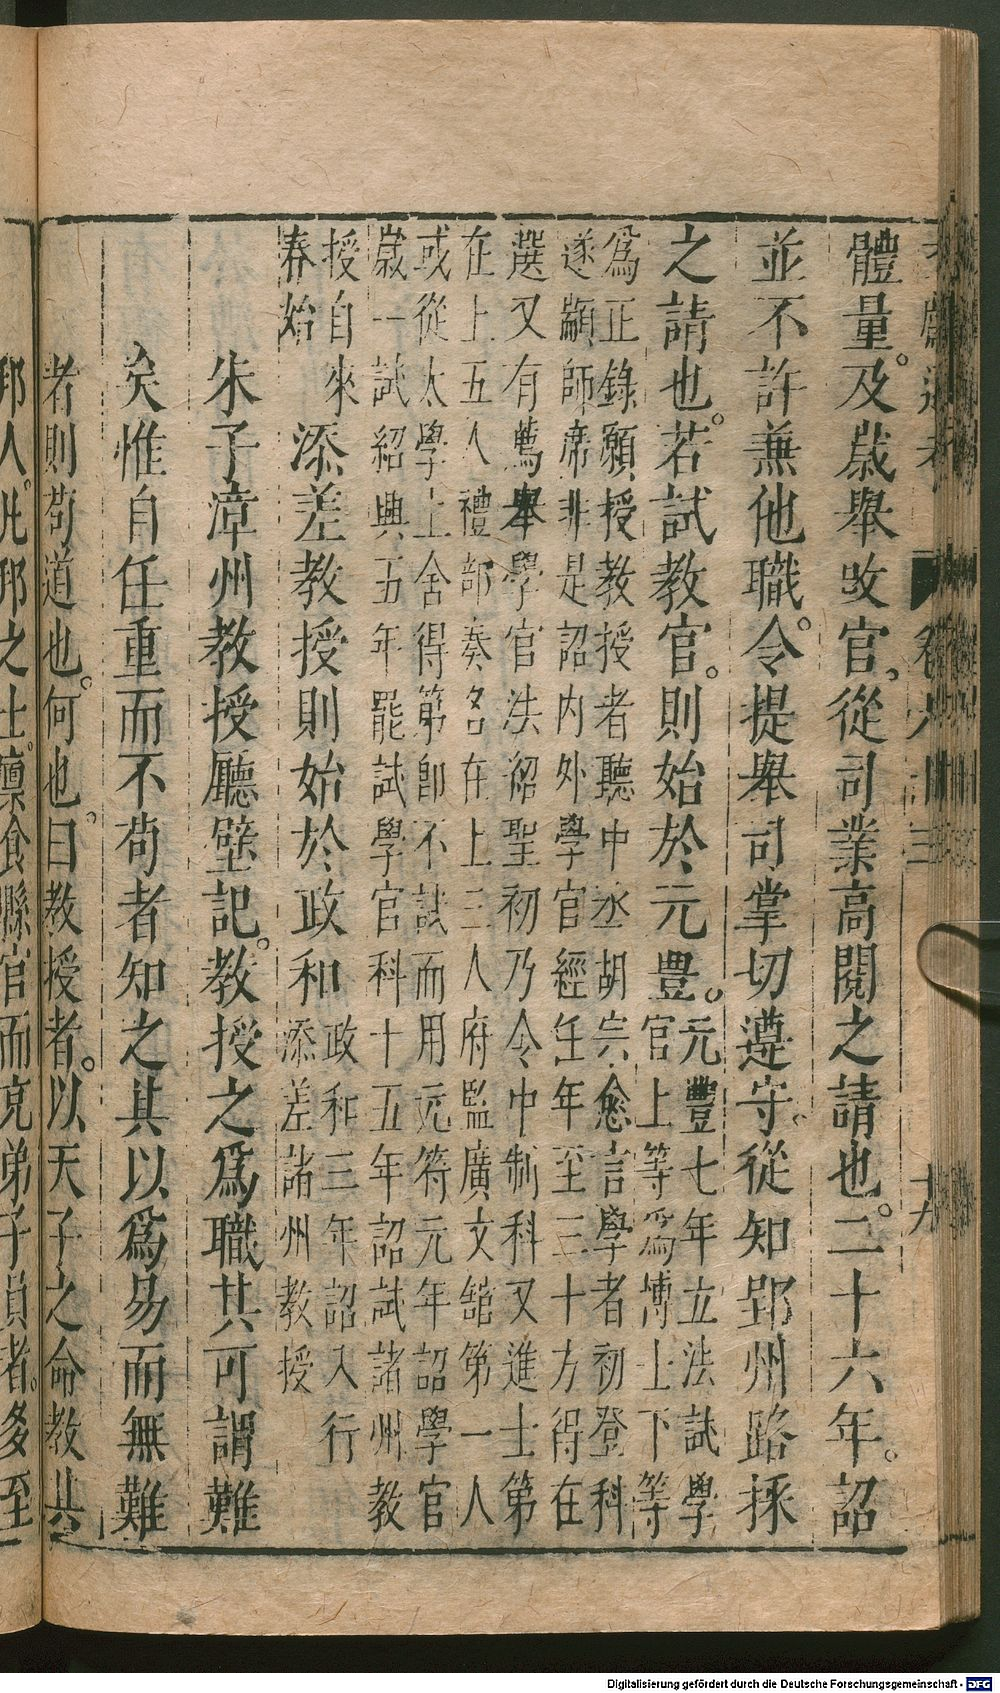 文獻通考 卷六十三 十九
體量。及歲舉改官。從司業高閱之請也。二十六年。詔
並不許兼他職。令提舉司掌切遵守。從知郢州路採
之請也。若試教官。則始於元豐。
元豐七年立法試學
官上等為博士下等
為正錄願授教授者聽中丞胡宗愈言學者初登科
遂顓師席非是詔内外學官經任年至三十方得在
選又有薦舉學官法紹聖初乃令中制科又進士第
在上五人禮部奏名在上三人府監廣文舘第一人
或從太學上舍得第即不試而用元符元年詔學官
歲一試紹興五年罷試學官科十五年詔試諸州教
授自來
春始
添差教授則始於政和
政和三年詔入行
添差諸州教授
朱子漳州教授廳壁記。教授之為職其可謂難
矣惟自任重而不苟者知之其以為易而無難
者則苟道也。何也。曰教授者。以天子之命教其
邦人。凡邦之士。廩食縣官而充弟子員者。多至
Digitalisierung gefördert durch die Deutsche Forschungsgemeinschaft - DFG